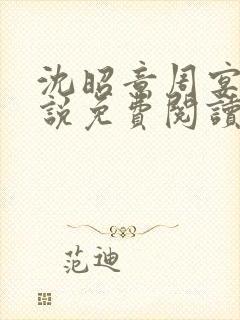 沈昭章周宴
說免費閱讀
范迪